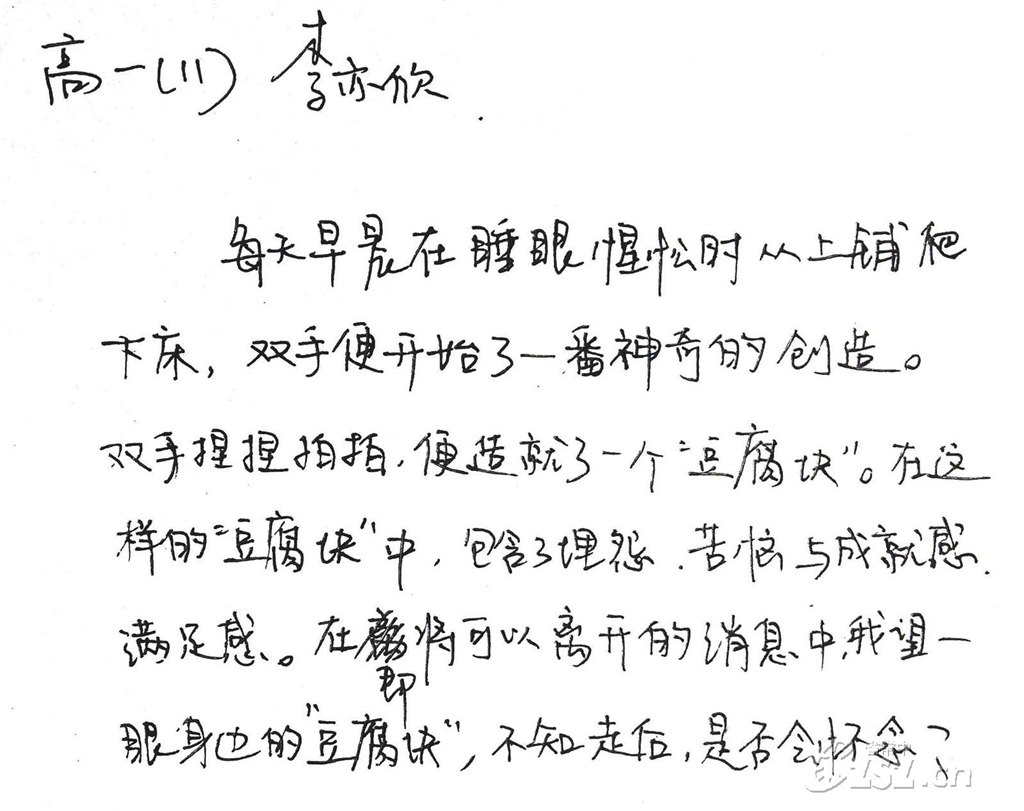 高一(11) 李亦欣
每天早晨在睡眼惺忪时从上铺爬
下床，双手便开始了一番神奇的创造。
双手捏捏拍拍，便造就了一个“豆腐块”。在这
样的“豆腐块”中，包含了埋怨、苦恼与成就感、
满足感。在即将可以离开的消息中，我望一
眼身边的“豆腐块”，不知走后，是否会怀念？